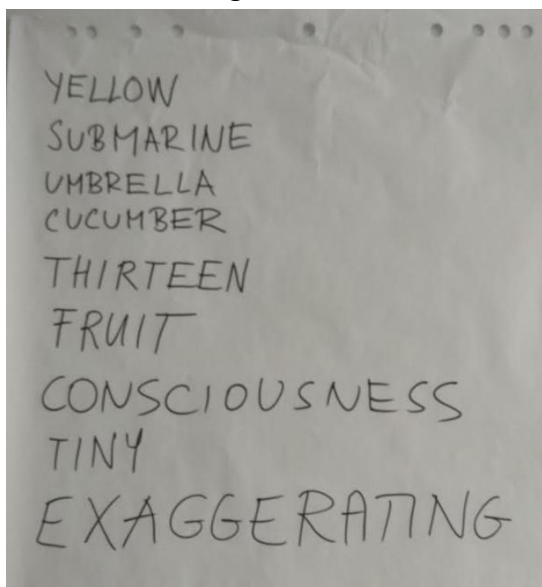 YELLOW
SUBMARINE
UMBRELLA
CUCUMBER
THIRTEEN
FRUIT
CONSCIOUSNESS
TINY
EXAGGERATING